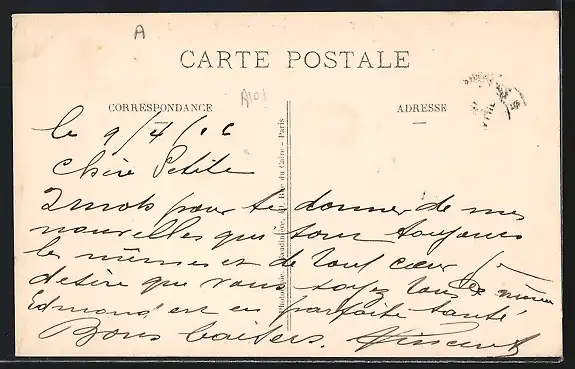 A
CARTE POSTALE
A101
CORRESPONDANCE
ADRESSE
le 9/4/06
Chère Petite
2 mots pour te donner de mes
nouvelles qui sont toujours
les mêmes et de tout cœur je
désire que vous soyez tous de même
Edmond est en parfaite santé
Bons baisers. Vincent
Rue du Caire - Paris